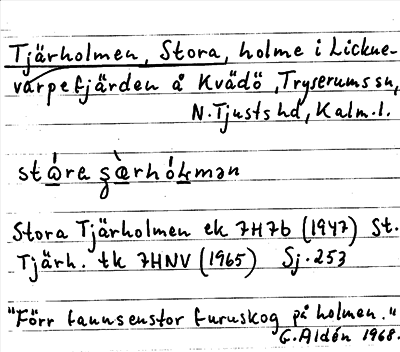 Tjärholmen, Stora, holme i Licknevarpefjärden å Kvädö, Tryserums sn,
N. Tjusts hd, Kalm. l.
Stora Tjärholmen ek 7H7b (1947) St.
Tjärh. tk 7HNV (1965) Sj. 253
"Förr fanns en stor furuskog på holmen."
G. Aldén 1968.